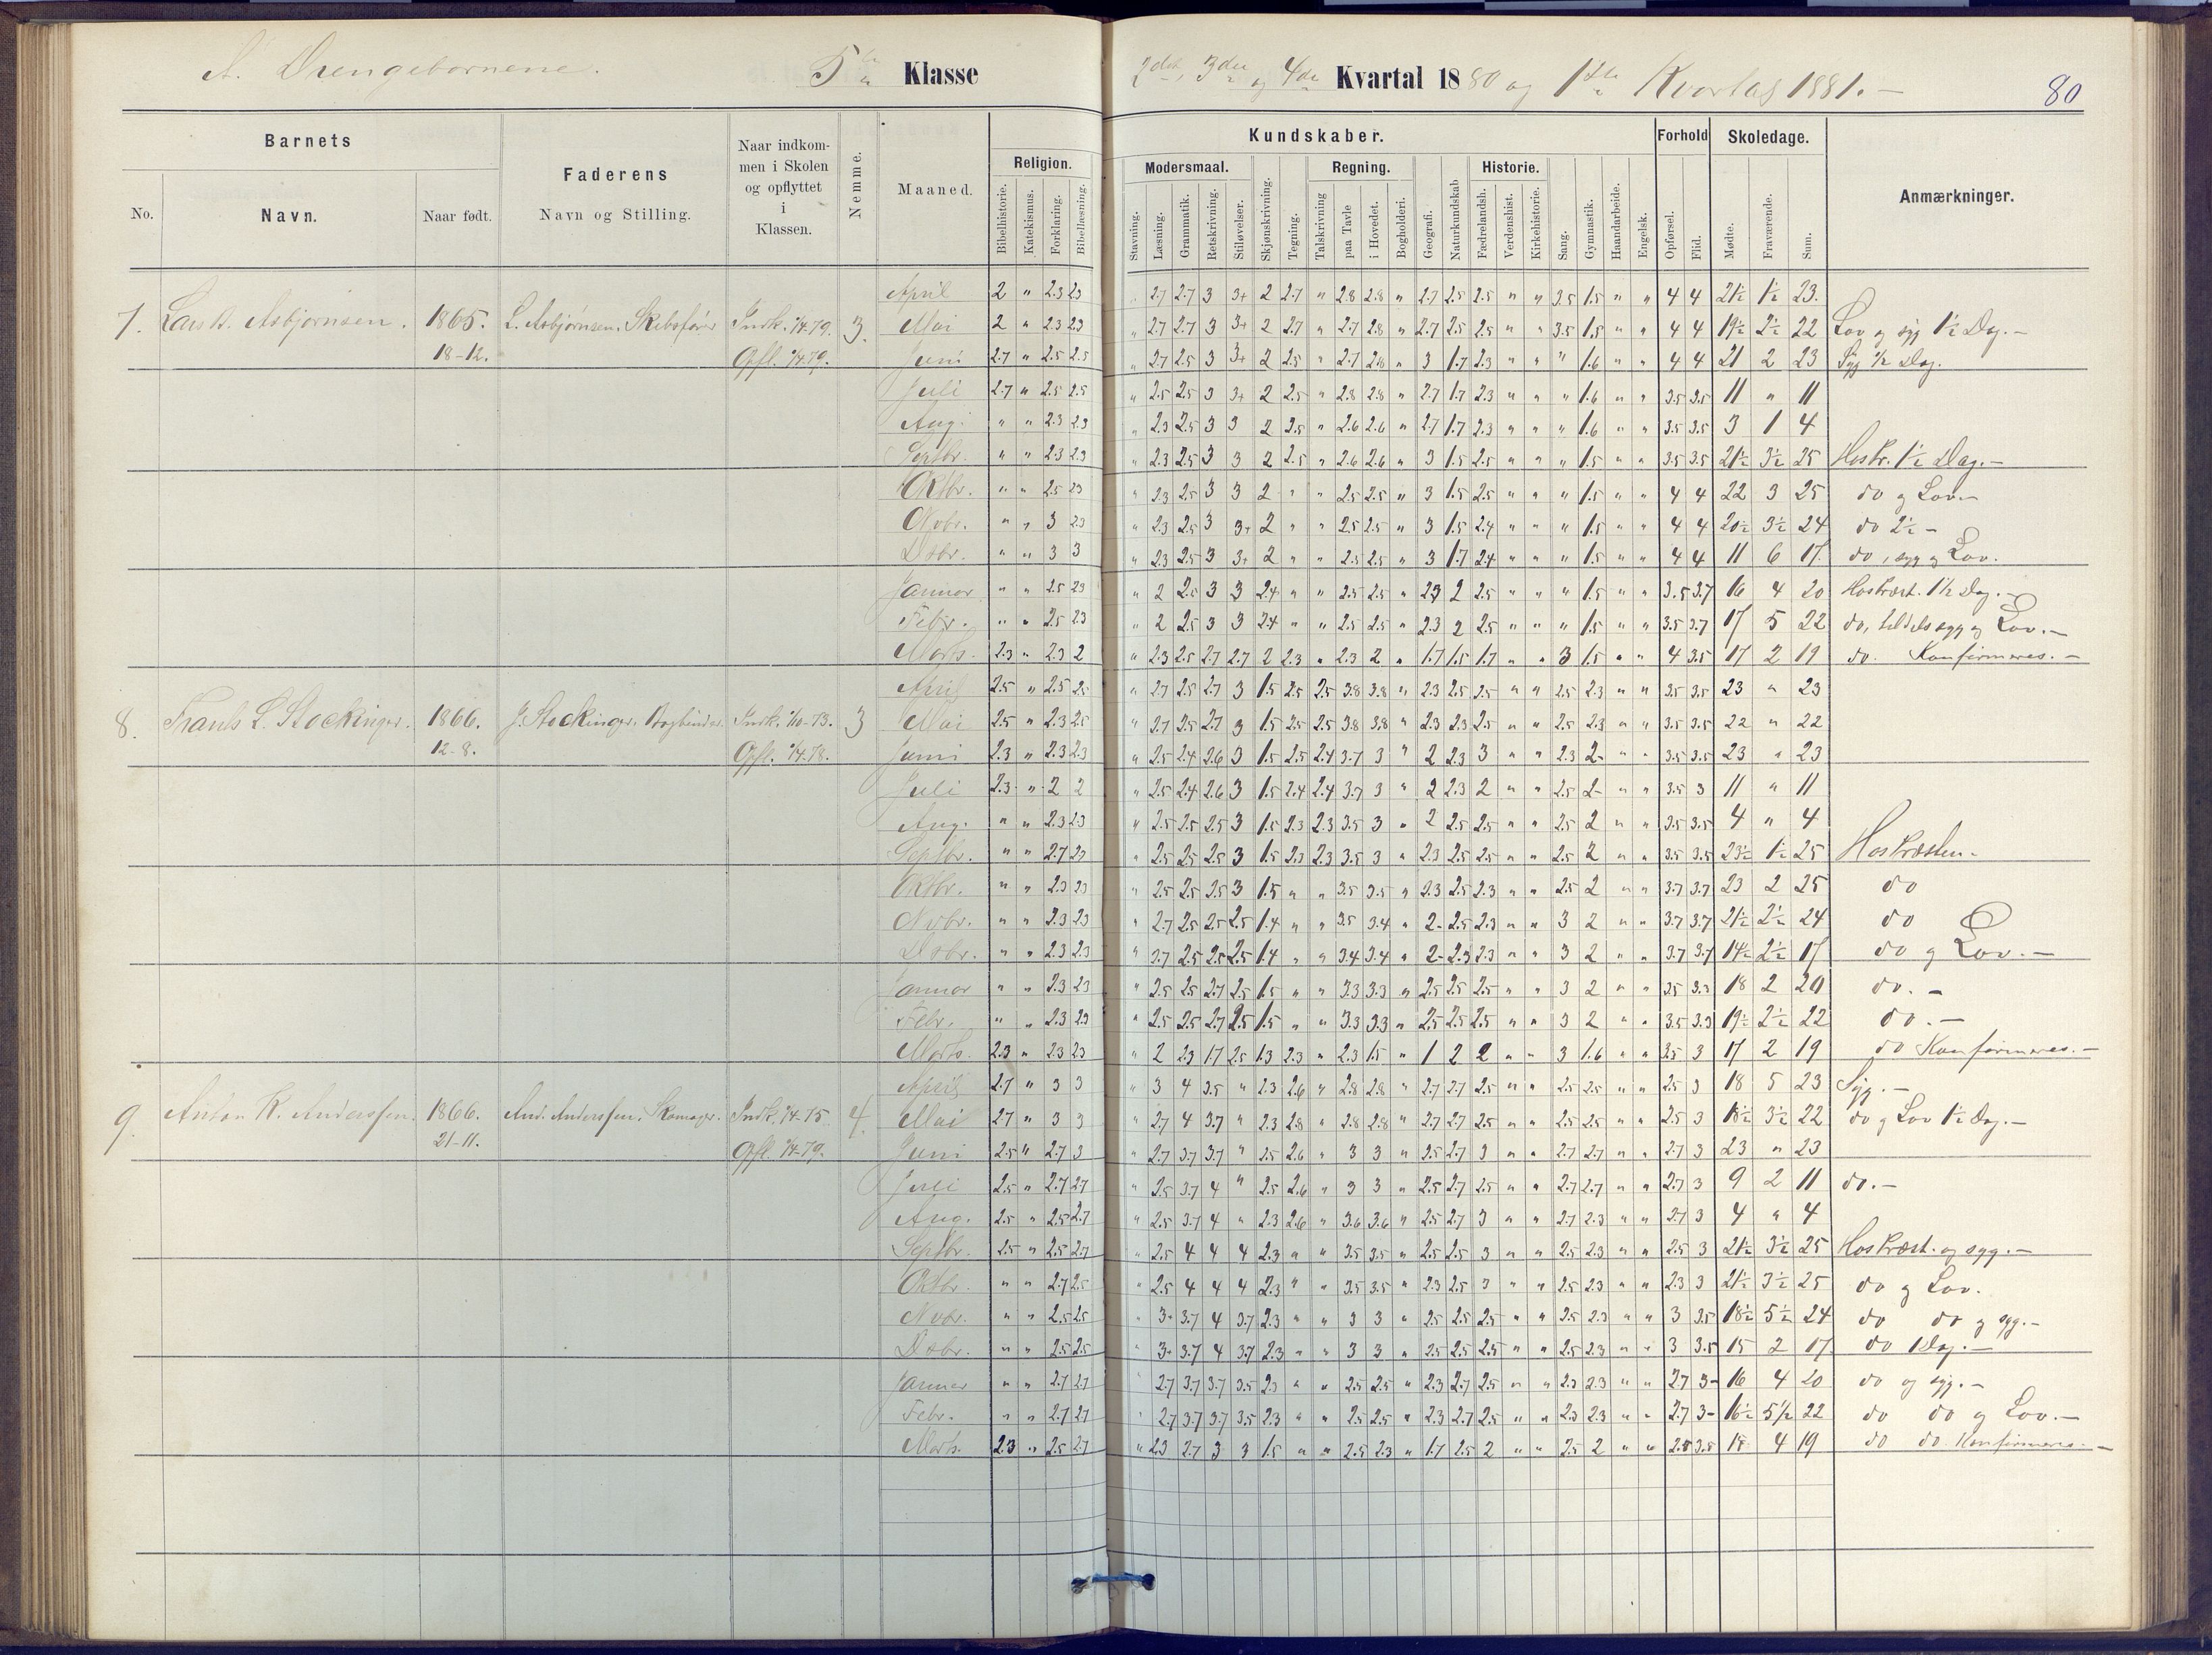 A. Drengebørnene. 5te Klasse 2det, 3die og 4de Kvartal 1880 og 1ste Kvartal 1881. — 80
Barnets
No. Navn. Naar født.
Faderens
Navn og Stilling.
Naar indkom-
men i Skolen
og opflyttet
i
Klassen.
Nemme.
Maaned.
Religion.
Bibelhistorie. Katekismus. Forklaring. Bibellæsning.
Kundskaber.
Modersmaal.
Stavning. Læsning. Grammatik. Retskrivning. Stiløvelser.
Skjønskrivning. Tegning.
Regning.
Talskrivning paa Tavle i Hovedet. Bogholderi.
Geografi. Naturkundskab
Historie.
Fædrelandsh. Verdenshist. Kirkehistorie.
Sang. Gymnastik. Haandarbeide. Engelsk.
Forhold
Opførsel. Flid.
Skoledage.
Mødte. Fraværende. Sum.
Anmærkninger.
April 2 " 2.3 2.3 " 2.7 2.7 3 3+ 2 2.7 " 2.8 2.8 " 2.7 2.5 2.5 " " 3.5 1.5 " " 4 4 21½ 1½ 23.
7. Lars B. Asbjørnsen. 1865. L. Asbjørnsen, Skibsfører Indk. 1/4-79. 3. Mai 2 " 2.3 2.3 " 2.7 2.7 3 3+ 2 2.7 " 2.7 2.8 " 2.7 2.5 2.5 " " 3.5 1.5 " " 4 4 19½ 2½ 22 Lov og syg 1½ Dag. —
18-12. Opfl. 1/4-79. Juni 2.7 " 2.5 2.5 " 2.7 2.5 3 3+ 2 2.5 " 2.7 2.8 " 3 1.7 2.3 " " " 1.6 " " 4 4 21 2 23 Syg ½ Dag.
Juli 2.7 " 2.5 2.5 " 2.5 2.5 3 3+ 2 2.5 " 2.8 2.8 " 2.7 1.7 2.3 " " " 1.6 " " 3.5 3.5 11 " 11
Aug. " " 2.3 2.3 " 2.3 2.5 3 3 2 2.5 " 2.6 2.6 " 2.7 1.7 2.3 " " " 1.6 " " 3.5 3.5 3 1 4
Septbr. " " 2.3 2.3 " 2.3 2.5 3 3 2 2.5 " 2.6 2.6 " 3 1.5 2.5 " " " 1.5 " " 3.5 3.5 21½ 3½ 25 Hos Pr. 1½ Dag. —
Oktbr. " " 2.5 2.3 " 2.3 2.5 3 3 2 " " 2.5 2.5 " 3 1.5 2.5 " " " 1.5 " " 4 4 22 3 25 do og Lov. —
Novbr. " " 3 2.3 " 2.3 2.5 3 3+ 2 " " 2.5 2.5 " 3 1.5 2.4 " " " 1.5 " " 4 4 20½ 3½ 24 do 2½ —
Dcbr. " " 3 3 " 2.3 2.5 3 3+ 2 " " 2.5 2.5 " 3 1.7 2.4 " " " 1.5 " " 4 4 11 6 17 do, syg og Lov.
Januar " " 2.5 2.3 " 2 2.5 3 3 2.4 " " 2.5 2.5 " 2.3 2 2.5 " " " 1.5 " " 3.5 3.7 16 4 20 Hos Præst. 1½ Dag. —
Febr. " " 2.5 2.3 " 2 2.5 3 3 2.4 " " 2.5 2.5 " 2.3 2 2.5 " " " 1.5 " " 3.5 3.7 17 5 22 do, tildels syg og Lov. —
Marts. 2.3 " 2.3 2 " 2.3 2.5 2.7 2.7 2 2.3 " 2.3 2 " 1.7 1.5 1.7 " " 3 1.5 " " 4 3.5 17 2 19 do. Konfirmeres. —
April 2.5 " 2.5 2.5 " 2.7 2.5 2.7 3 1.5 2.5 2.5 3.8 3.8 " 2.3 2.5 2.5 " " 2.5 2.3 " " 3.5 3.5 23 " 23
8. Frants L. Stockinger. 1866. J. Stockinger, Bogbinder. Indk. 1/10-73. 3 Mai 2.5 " 2.3 2.5 " 2.7 2.5 2.7 3 1.5 2.5 2.5 3.8 3.8 " 2.3 2.3 2.5 " " 2.5 2.3 " " 3.5 3.5 22 " 22
12-8. Opfl. 1/4-78. Juni 2.3 " 2.3 2.3 " 2.5 2.4 2.6 3 1.5 2.5 2.4 3.7 3 " 2 2.3 3 " " 2.3 2- " " 3.5 3.5 23 " 23
Juli 2.3 " 2 2 " 2.5 2.4 2.6 3 1.5 2.4 2.4 3.7 3 " 2 2.3 2 " " 2.5 2- " " 3.5 3 11 " 11
Aug. " " 2.3 2.3 " 2.5 2.5 2.5 3 1.5 2.3 2.3 3.5 3 " 2 2.5 2.5 " " 2.5 2 " " 3.5 3.5 4 " 4
Septbr. " " 2.7 2.3 " 2.5 2.5 2.5 3 1.5 2.3 2.3 3.5 3 " 2.3 2.5 2.5 " " 2.5 2 " " 3.5 3.5 23½ 1½ 25 Hos Præsten —
Oktbr. " " 2.3 2.3 " 2.5 2.5 2.5 3 1.5 " " 3.5 3.5 " 2.3 2.5 2.3 " " 2.5 2 " " 3.7 3.7 23 2 25 do
Novbr. " " 2.3 2.3 " 2.7 2.5 2.5 2.5 1.4 " " 3.5 3.4 " 2- 2.5 2.3 " " 3 2 " " 3.7 3.7 21½ 2½ 24 do
Dcbr. " " 2.3 2.3 " 2.7 2.5 2.5 2.5 1.4 " " 3.4 3.4 " 2- 2.3 2.3 " " 3 2 " " 3.7 3.7 14½ 2½ 17 do og Lov. —
Januar " " 2.3 2.3 " 2.5 2.5 2.7 2.5 1.5 " " 3.3 3.3 " 2.5 2.5 2.5 " " 3 2 " " 3.5 3.3 18 2 20 do. —
Febr. " " 2.3 2.3 " 2.5 2.5 2.7 2.5 1.5 " " 3.3 3.3 " 2.5 2.5 2.5 " " 3 2 " " 3.5 3.3 19½ 2½ 22 do. —
Marts. 2.3 " 2.3 2.3 " 2 2.3 1.7 2.5 1.3 2.3 " 2.3 1.5 " 1 2 2 " " 3 1.6 " " 3.5 3 17 2 19 do Konfirmeres. —
April 2.7 " 3 3 " 3 4 3.5 " 2.3 2.6 " 2.8 2.8 " 2.7 2.7 2.5 " " 2.5 2.5 " " 2.5 3 18 5 23 Syg. —
9. Anton R. Anderssen. 1866. And. Anderssen, Skomager. Indk. 1/4-75. 4. Mai 2.7 " 3 3 " 2.7 4 3.7 " 2.3 2.8 " 2.8 2.8 " 2.7 2.7 2.5 " " 2.5 2.5 " " 2.5 3 18½ 3½ 22 do og Lov 1½ Dag. —
21-11. Opfl. 1/4-79. Juni 2.5 " 2.7 3 " 2.7 3.7 3.7 " 2.5 2.6 " 3 3 " 2.5 2.7 3 " " 2.7 2.7 " " 2.7 3 23 " 23
Juli 2.5 " 2.7 2.7 " 2.5 3.7 4 " 2.5 2.6 " 3 3 " 2.5 2.7 2.5 " " 2.7 2.7 " " 2.7 3 9 2 11 do. —
Aug. 2.5 " 2.5 2.7 " 2.5 3.7 4 " 2.3 2.6 " 3.6 3.6 " 2.5 2.7 3 " " 2.7 2.3 " " 2.7 3 4 " 4
Septbr. 2.5 " 2.5 2.7 " 2.5 4 4 4 2.3 " " 3.5 3.5 " 2.5 2.5 3 " " 2.5 2.3 " " 2.5 3 21½ 3½ 25 Hos Præst. og syg. —
Oktbr. " " 2.7 2.5 " 2.5 4 4 4 2.3 " " 3.5 3.5 " 2.3 2.5 3 " " 2.5 2.3 " " 2.3 3 21½ 3½ 25 do og Lov.
Novbr. " " 2.5 2.5 " 3- 3.7 4 3.7 2.3 " " 3 3 " 2.5 2.5 2.5 " " 2.5 2.3 " " 3 3.5 18½ 5½ 24 do do og syg. —
Dcbr. " " 2.5 2.5 " 3- 3.7 4 3.7 2.3 " " 3 3 " 2.5 2.5 2.5 " " 2.5 2.3 " " 3 3.5 15 2 17 do 1 Dag. —
Januar " " 2.7 2.7 " 2.7 3.7 3.7 3.5 2.3 " " 2.5 2.5 " 2.3 2.7 2.5 " " 2.3 2.3 " " 2.7 3- 16 4 20 do og syg. —
Febr. " " 2.7 2.7 " 2.7 3.7 3.7 3.5 2.3 " " 2.5 2.5 " 2.3 2.7 2.5 " " 2.3 2.3 " " 2.7 3- 16½ 5½ 22 do do og Lov. —
Marts. 2.3 " 2.5 2.7 " 2.3 2.7 3 3 1.5 " " 2.5 2.3 " 1.7 2.5 2 " " 2.5 2 " " 2.5 3.5 15 4 19 do do Konfirmeres. —